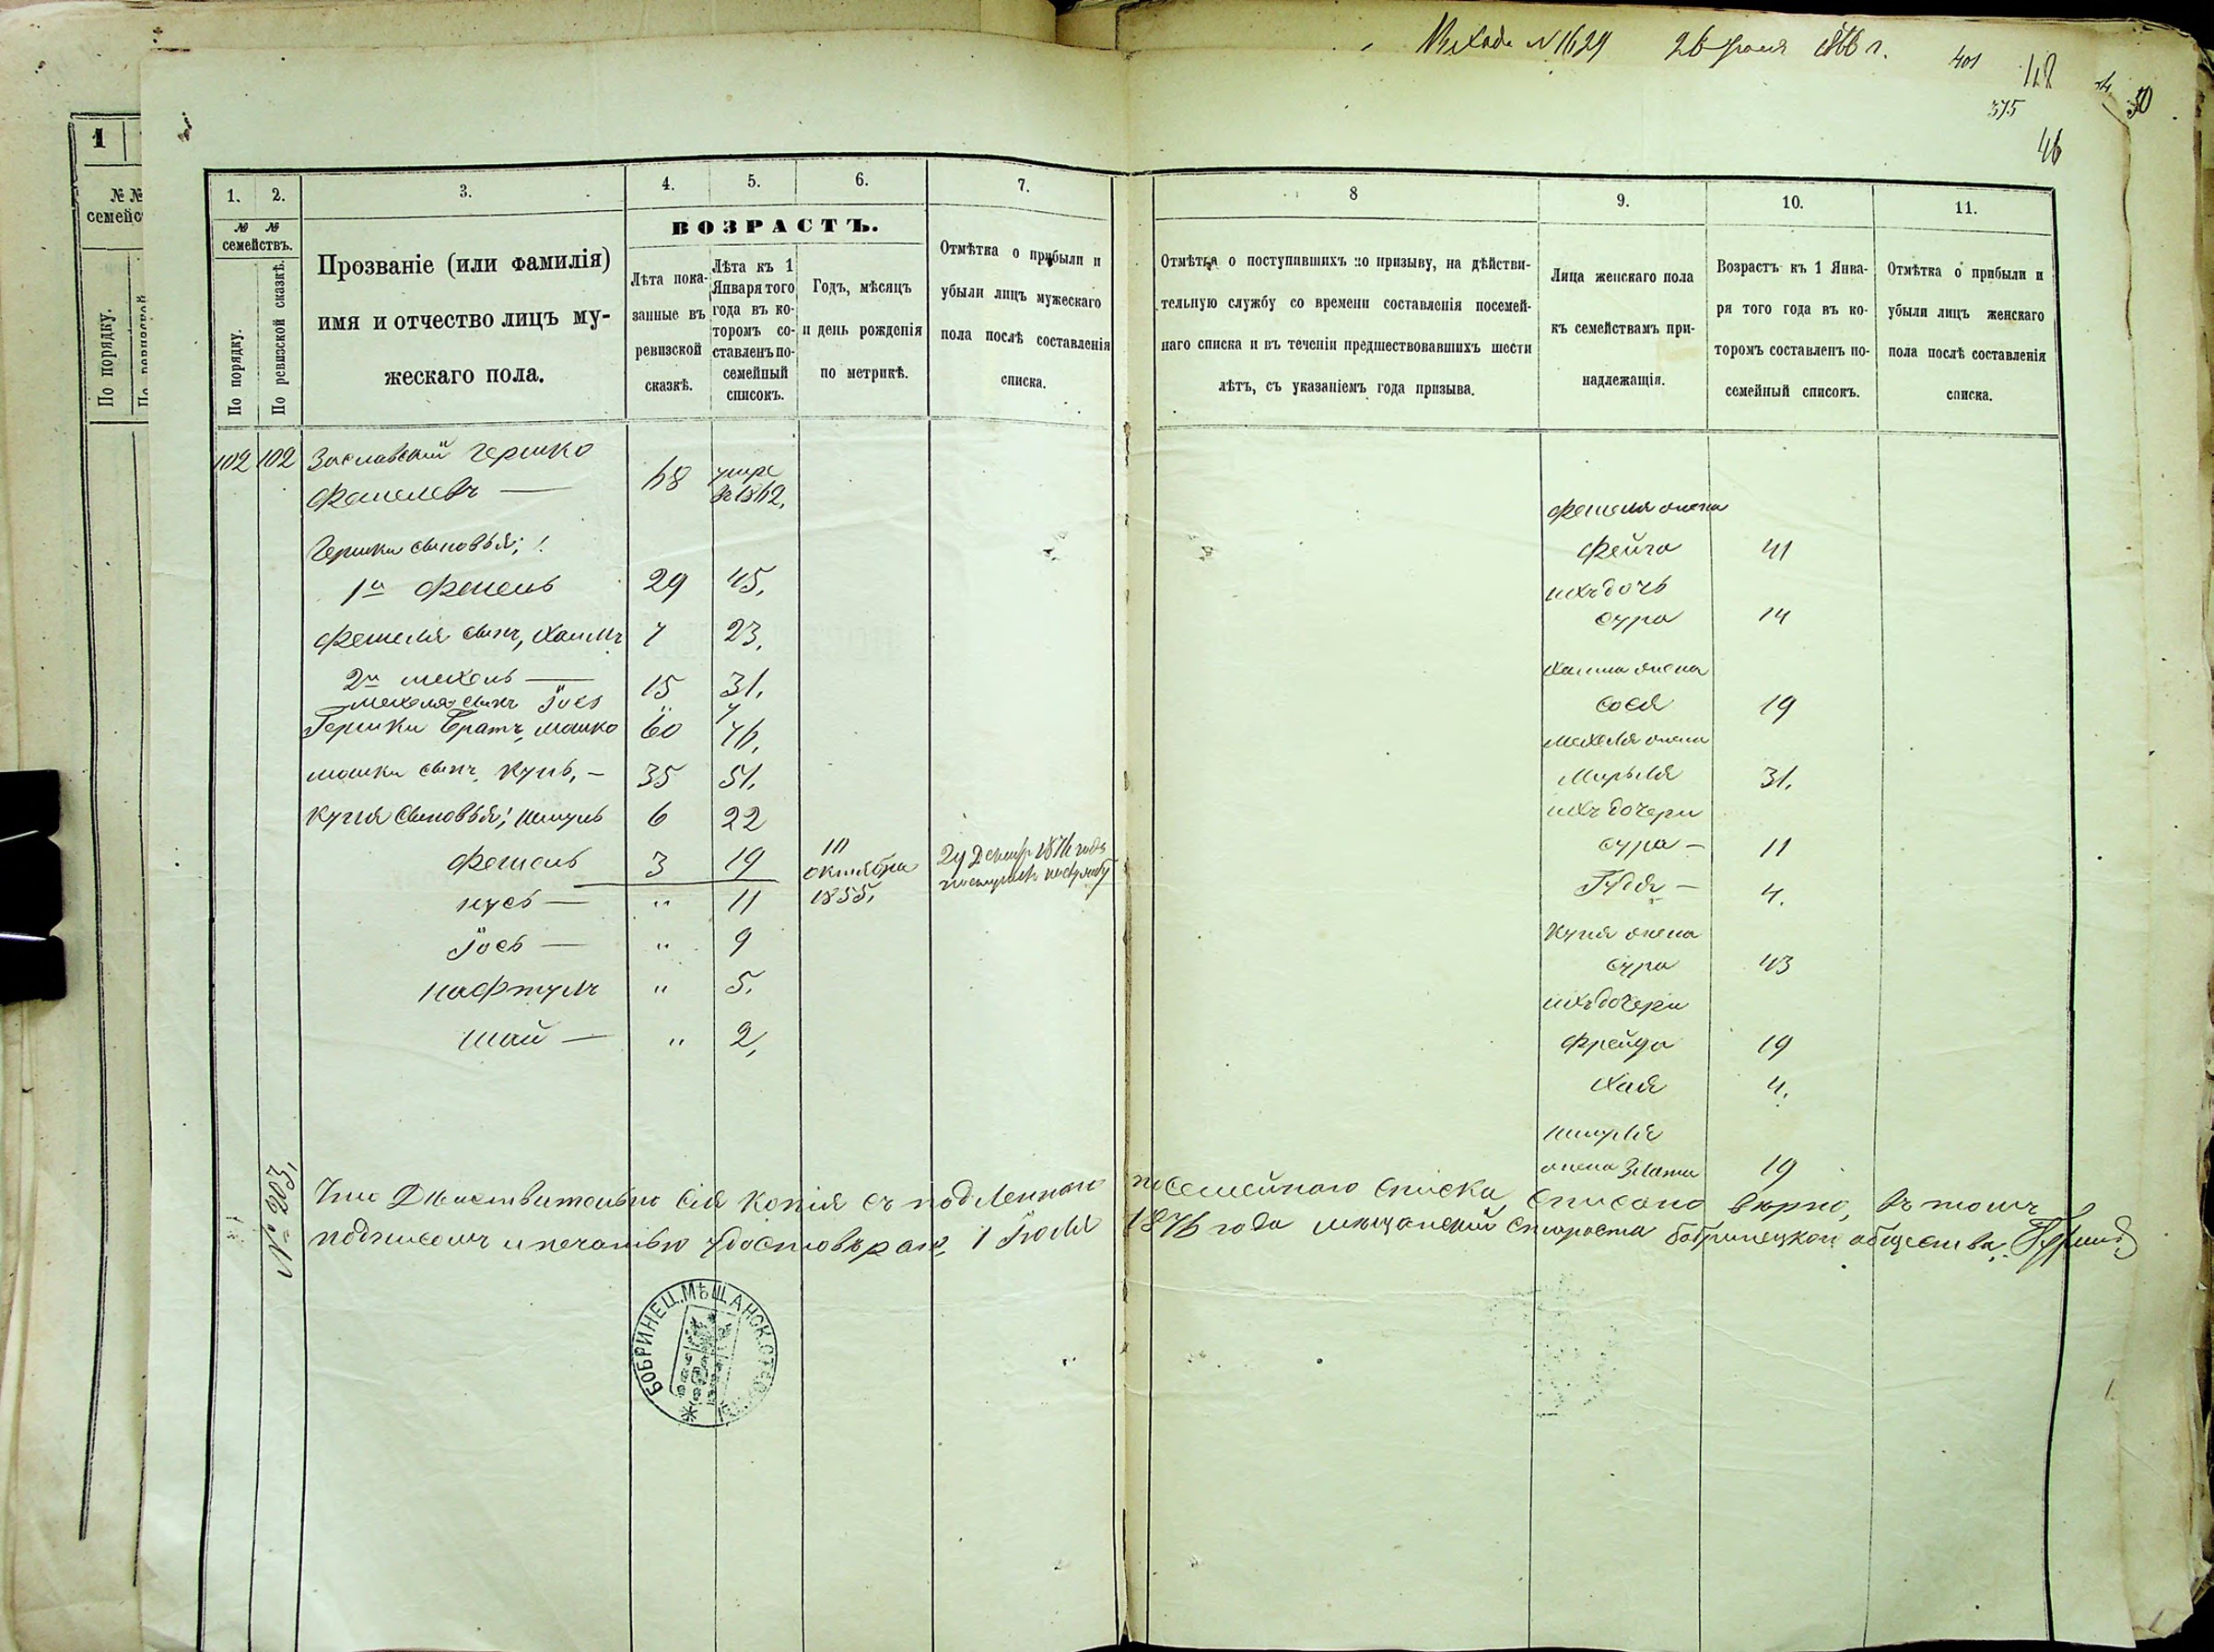 № 1629 26 1876 г.
401
375
46
50
1
№ №
По порядку.
1. 2. 3. 4. 5. 6. 7.
№ № семействъ.
По порядку.
По ревизской сказкѣ.
Прозваніе (или фамилія)
имя и отчество лицъ му-
жескаго пола.
ВОЗРАСТЪ.
Лѣта пока-
занные въ
ревизской
сказкѣ.
Лѣта къ 1
Января того
года въ ко-
торомъ со-
ставленъ по-
семейный
списокъ.
Годъ, мѣсяцъ
и день рожденія
по метрикѣ.
Отмѣтка о прибыли и
убыли лицъ мужескаго
пола послѣ составленія
списка.
102 102 Заславскій Гершко
Фешелевъ — 68 умре въ 1862,
Гершки сыновья;
1й Фешель 29 45,
Фешеля сынъ, Хаимъ 7 23,
2й Мехель — 15 31,
Мехеля сынъ Іось " 7
Гершки братъ, Мошко 60 76,
Мошки сынъ, Куль, — 35 51,
Куля сыновья; Шмуль 6 22
Фешель 3 19 октября 1855, 1876 года
Нусь — " 11
Іось — " 9
Нафтулъ " 5,
Шай — " 2,
8 9. 10. 11.
Отмѣтка о поступившихъ по призыву, на дѣйстви-
тельную службу со времени составленія посемей-
наго списка и въ теченіи предшествовавшихъ шести
лѣтъ, съ указаніемъ года призыва.
Лица женскаго пола
къ семействамъ при-
надлежащія.
Возрастъ къ 1 Янва-
ря того года въ ко-
торомъ составленъ по-
семейный списокъ.
Отмѣтка о прибыли и
убыли лицъ женскаго
пола послѣ составленія
списка.
Фешеля жена
Фейга 41
ихъ дочь
Сура 14
Хаима жена
Сося 19
Мехеля жена
Мирьля 31,
ихъ дочери
Сура — 11
4.
Куля жена
Сура 43
ихъ дочери
Фрейда 19
Хая 4.
Шмуля
жена Злата 19
№ 203,
Что Дѣйствительно сія копія съ подленнаго посемейнаго списка списана вѣрно, въ томъ
подписомъ и печатью удостовѣряю, 1 Іюля 1876 года мѣщанскій староста бобринецкаго общества.
БОБРИНЕЦ. МѢЩАНСК. СТАРО